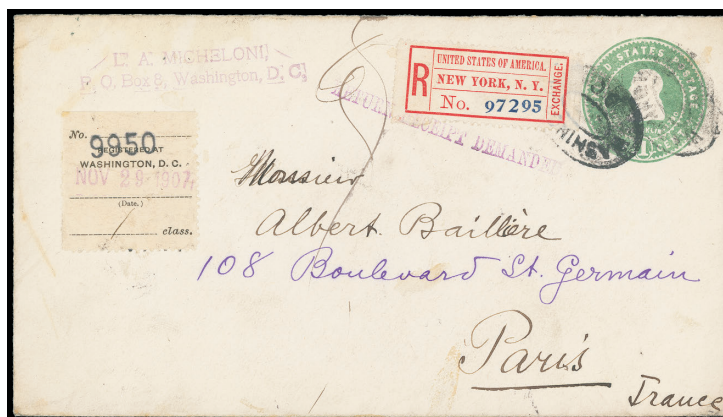 L. A. MICHELONI,
P. O. Box 8, Washington, D. C.
UNITED STATES OF AMERICA.
R NEW YORK, N. Y. EXCHANGE.
No. 97295
STATES POSTAGE
RETURN RECEIPT DEMANDED
No. 9950
REGISTERED AT
WASHINGTON, D. C.
NOV 29 1907
(Date.)
1 class.
Monsieur
Albert Baillière
108 Boulevard St. Germain
Paris
France